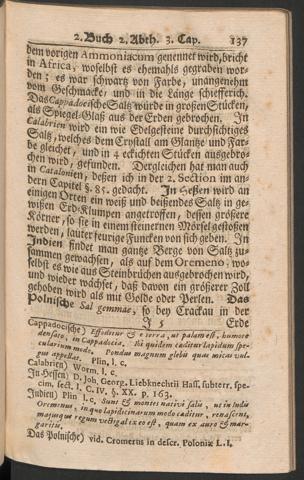 2. Buch 2. Abth. 3. Cap. 137
dem vorigen Ammoniacum genennet wird, bricht
in Africa, woselbst es ehemahls gegraben wor-
den; es war schwartz von Farbe, unangenehm
vom Geschmacke, und in die Länge schiefferich.
Das Cappadocische Saltz würde in großen Stücken,
als Spiegel-Glaß aus der Erden gebrochen. In
Calabrien wird ein wie Edelgesteine durchsichtiges
Saltz, welches dem Crystall am Glantze und Far-
be gleichet, und in 4 eckichten Stücken ausgebro-
chen wird, gefunden. Dergleichen hat man auch
in Catalonien, deßen ich in der 2. Section im an-
dern Capitel §. 85. gedacht. In Heßen wird an
einigen Orten ein weiß und beißendes Saltz in ge-
wißen Erd-Klumpen angetroffen, dessen größere
Körner, so sie in einem steinernen Mörsel gestoßen
werden, lauter feurige Funcken von sich geben. In
Indien findet man gantze Berge von Saltz zu-
sammen gewachsen, als auf dem Oremeno, wo-
selbst es wie aus Steinbrüchen ausgebrochen wird,
und wieder wächset, daß davon ein größerer Zoll
gehoben wird als mit Golde oder Perlen. Das
Polnische Sal gemmae, so bey Crackau in der
J 5 Erde
Cappadocische) Effoditur & e terra, ut palam est, humore
densato, in Cappadocia. Ibi quidem caeditur lapidum spe-
cularium modo. Pondus magnum glebis quas micas vul-
gus appellat. Plin. l. c.
Calabrien) Worm. l. c.
In Heßen) D. Joh. Georg. Liebknechtii Hass. subterr. spe-
cim. sect. I. C. IV. §. XX. p. 163.
Indien) Plin l. c. Sunt & montes nativi salis, ut in Indis
Oremenus, in quo lapidicinarum modo caeditur, renascens,
majusque regum vectigal ex eo est, quam ex auro & mar-
garitis.
Das Polnische) vid. Cromerus in descr. Poloniae L. I.